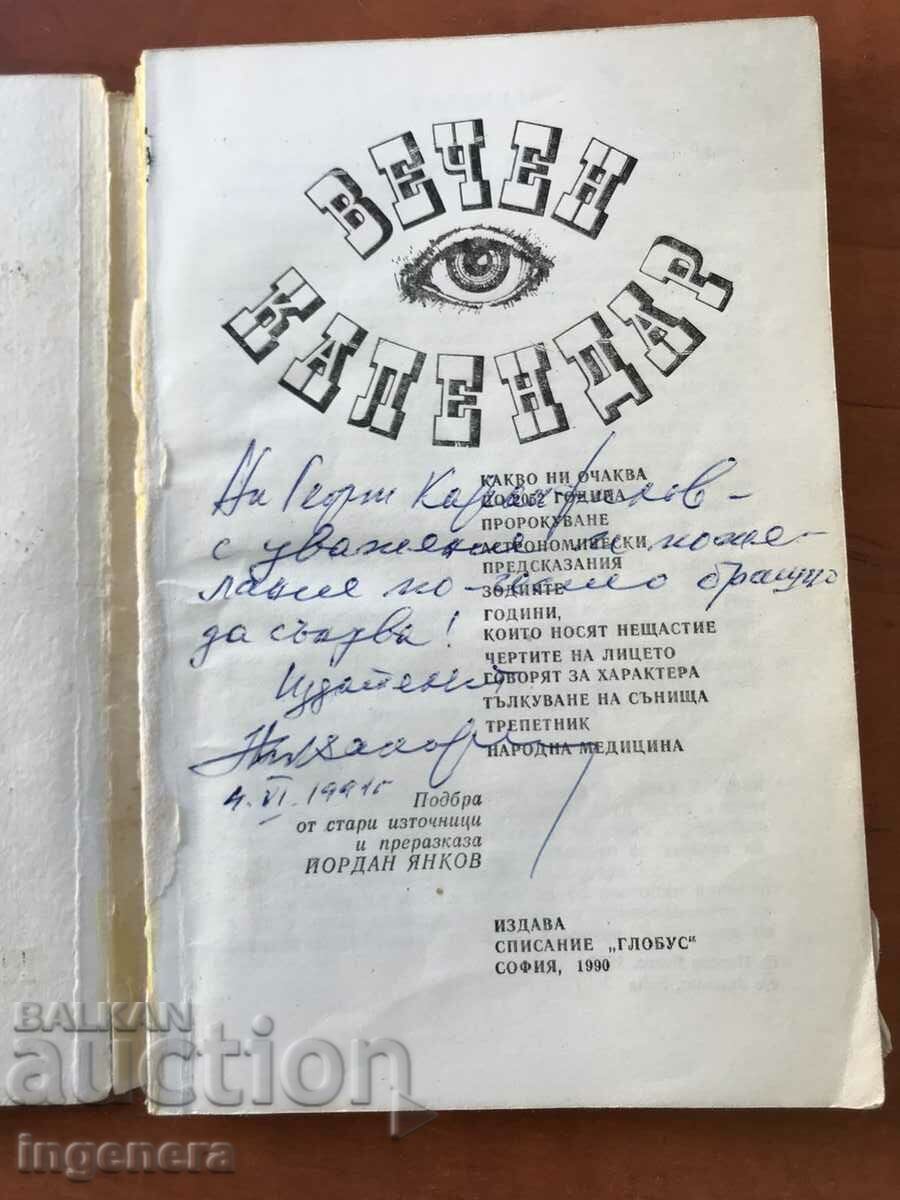 ВЕЧЕН
КАЛЕНДАР
КАКВО НИ ОЧАКВА
ДО 2052 ГОДИНА
ПРОРОКУВАНЕ
АСТРОНОМИЧЕСКИ
ПРЕДСКАЗАНИЯ
ЗОДИИТЕ
ГОДИНИ,
КОИТО НОСЯТ НЕЩАСТИЕ
ЧЕРТИТЕ НА ЛИЦЕТО
ГОВОРЯТ ЗА ХАРАКТЕРА
ТЪЛКУВАНЕ НА СЪНИЩА
ТРЕПЕТНИК
НАРОДНА МЕДИЦИНА
На Георги
с уважение и поже-
лание по-често
да сънува!
Издателят
4.VI.1991г
Подбра
от стари източници
и преразказа
ЙОРДАН ЯНКОВ
ИЗДАВА
СПИСАНИЕ „ГЛОБУС“
СОФИЯ, 1990
BALKAN
auction
ingenera